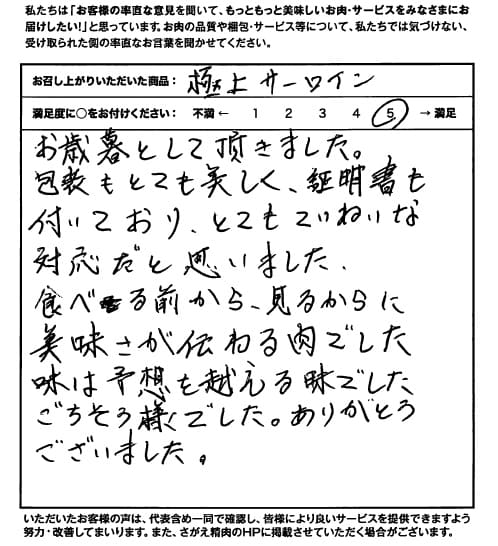 私たちは「お客様の率直な意見を聞いて、もっともっと美味しいお肉・サービスをみなさまにお
届けしたい!」と思っています。お肉の品質や梱包・サービス等について、私たちでは気づけない、
受け取られた側の率直なお言葉を聞かせてください。
お召し上がりいただいた商品: 極上サーロイン
満足度に○をお付けください: 不満 ← 1 2 3 4 5 → 満足
お歳暮として頂きました。
包装もとても美しく、証明書も
付いており、とてもていねいな
対応だと思いました、
食べる前から、見るからに
美味さが伝わる肉でした
味は予想を越える味でした
ごちそう様でした。ありがとう
ございました。
いただいたお客様の声は、代表含め一同で確認し、皆様により良いサービスを提供できますよう
努力・改善してまいります。また、さがえ精肉のHPに掲載させていただく場合がございます。